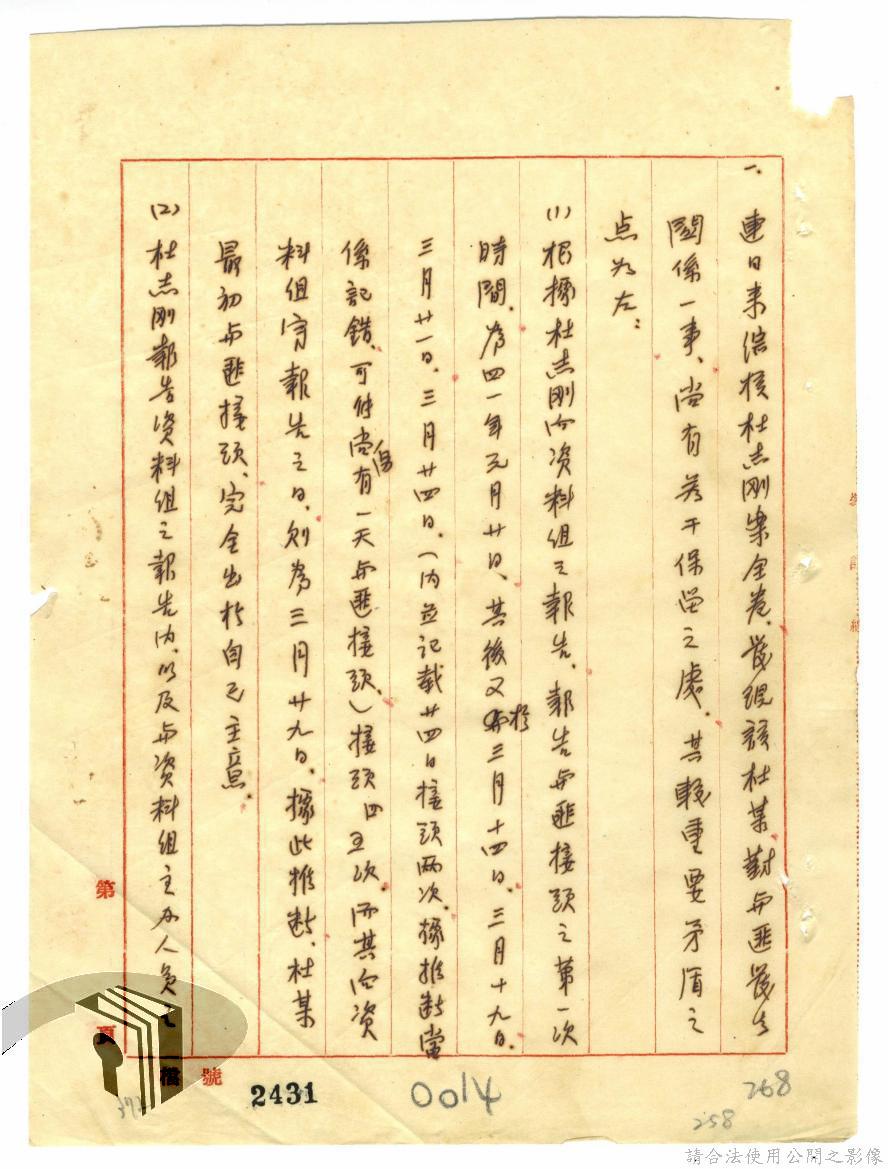 一、連日来綜核杜志刚案全卷、發現該杜某對与匪發生
關係一事、尚有若干保留之處、其較重要矛盾之
点为左：
(1) 根據杜志刚向资料组之報告、報告与匪接頭之第一次
時間、為四一年元月廿日、其後又於三月十四日、三月十九日、
三月廿一日、三月廿四日、(內並記載廿四日接頭兩次、據推断當
係記錯、可能尚有一天与匪接頭、)接頭四五次、而其向资
料组寫報告之日、则為三月廿九日、據此推断、杜某
最初与匪接頭、完全出於自己主意、
(2) 杜志刚報告资料组之報告內、以及与资料组主办人員之
第
頁
檔
號
2431
0014
268
258
372
請合法使用公開之影像